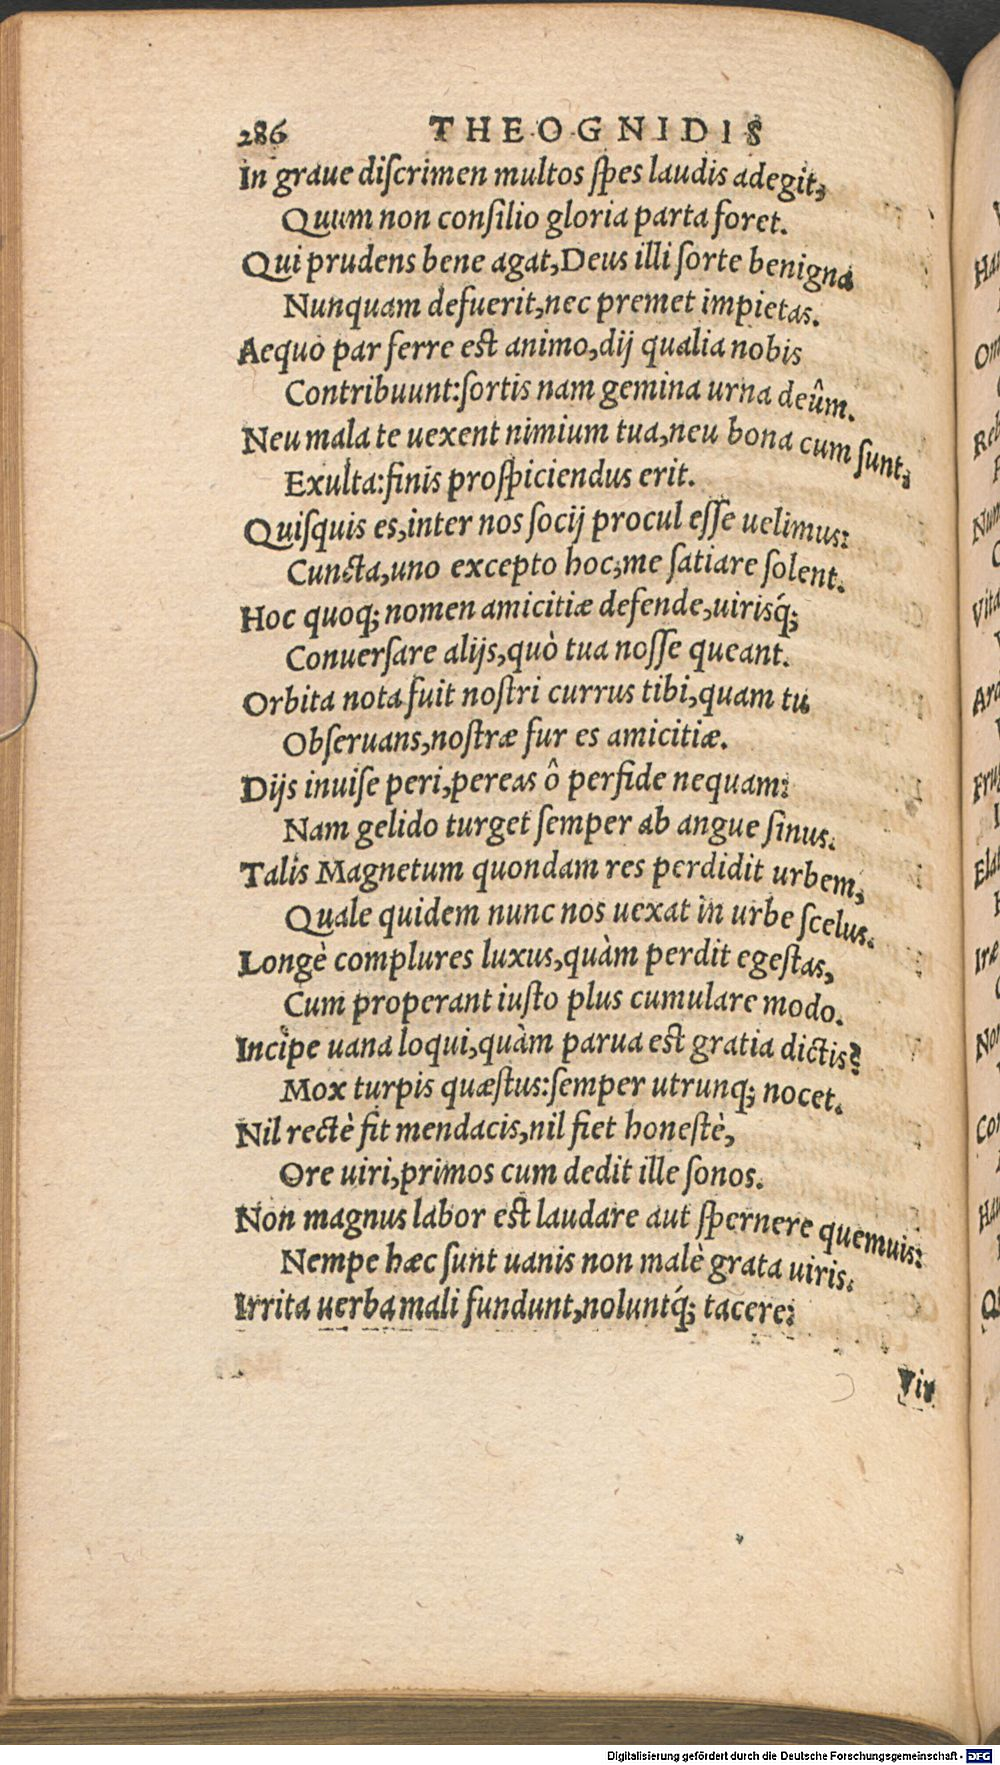 286 THEOGNIDIS
In graue diſcrimen multos ſpes laudis adegit,
Quum non conſilio gloria parta foret.
Qui prudens bene agat, Deus illi ſorte benigna
Nunquam defuerit, nec premet impietas.
Aequo par ferre est animo, dij qualia nobis
Contribuunt: ſortis nam gemina urna deûm.
Neu mala te uexent nimium tua, neu bona cum ſunt,
Exulta: finis proſpiciendus erit.
Quiſquis es, inter nos ſocij procul eſſe uelimus:
Cuncta, uno excepto hoc, me ſatiare ſolent.
Hoc quoq; nomen amicitiæ defende, uirisq́;
Conuerſare alijs, quò tua noſſe queant.
Orbita nota fuit noſtri currus tibi, quam tu
Obſeruans, noſtræ fur es amicitiæ.
Dijs inuiſe peri, pereas ô perfide nequam:
Nam gelido turget ſemper ab angue ſinus.
Talis Magnetum quondam res perdidit urbem,
Quale quidem nunc nos uexat in urbe ſcelus.
Longè complures luxus, quàm perdit egeſtas,
Cum properant iuſto plus cumulare modo.
Incipe uana loqui, quàm parua est gratia dictis?
Mox turpis quæſtus: ſemper utrunq; nocet.
Nil rectè fit mendacis, nil fiet honeſtè,
Ore uiri, primos cum dedit ille ſonos.
Non magnus labor est laudare aut ſpernere quemuis:
Nempe hæc ſunt uanis non malè grata uiris.
Irrita uerba mali fundunt, noluntq́; tacere:
Vir
Digitalisierung gefördert durch die Deutsche Forschungsgemeinschaft - DFG